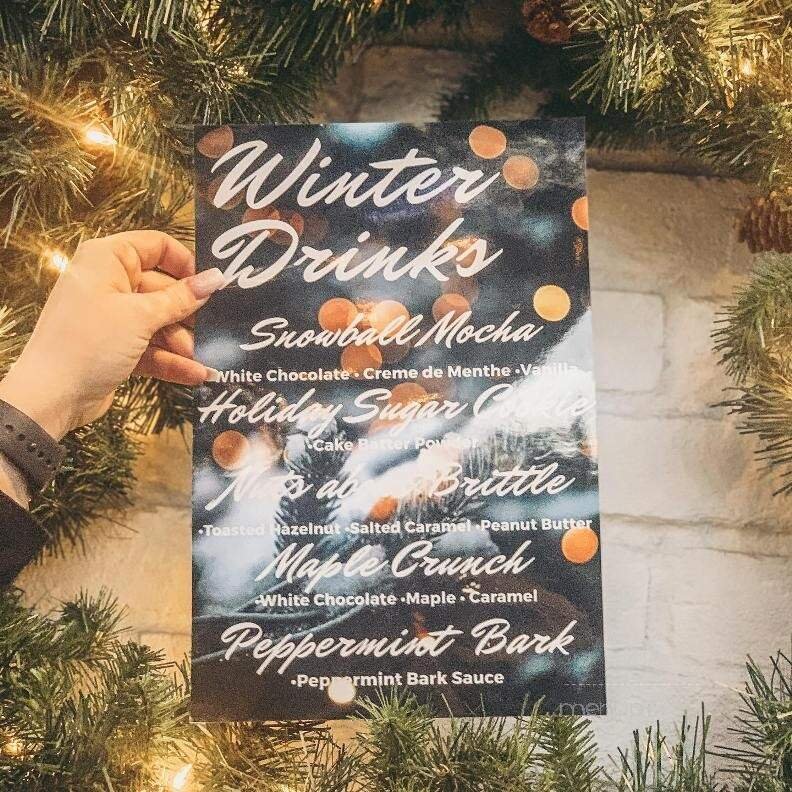 Winter
Drinks
Snowball Mocha
White Chocolate • Creme de Menthe •Vanilla
Holiday Sugar Cookie
•Cake Batter Powder
Nuts about Brittle
•Toasted Hazelnut •Salted Caramel •Peanut Butter
Maple Crunch
•White Chocolate •Maple • Caramel
Peppermint Bark
•Peppermint Bark Sauce